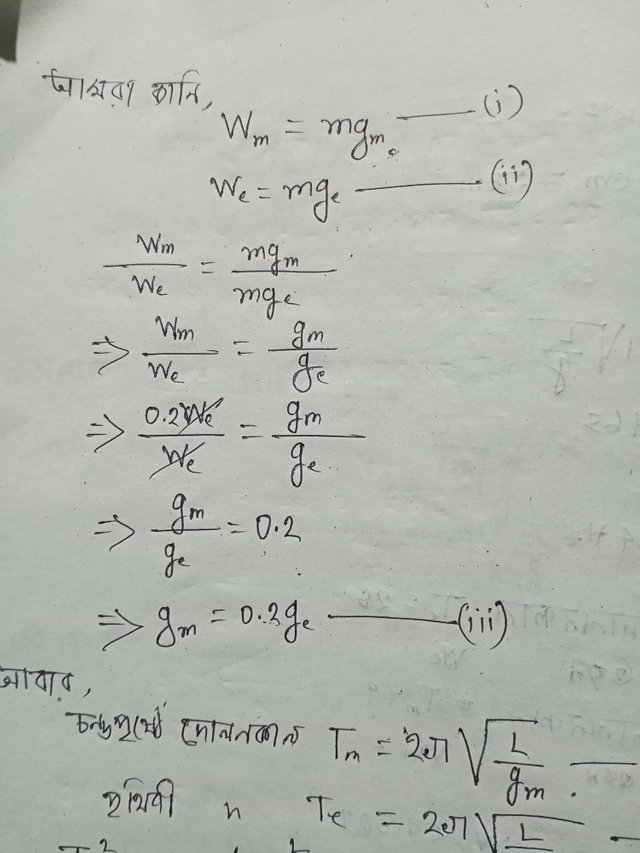 আমরা জানি,
Wm = mgm. —— (i)
We = mge —— (ii)
Wm/We = mgm/mge
⇒ Wm/We = gm/ge
⇒ 0.2We/We = gm/ge
⇒ gm/ge = 0.2
⇒ gm = 0.2ge —— (iii)
আবার,
চন্দ্রপৃষ্ঠে দোলনকাল Tm = 2π√(L/gm). ——
পৃথিবী " Te = 2π√(L